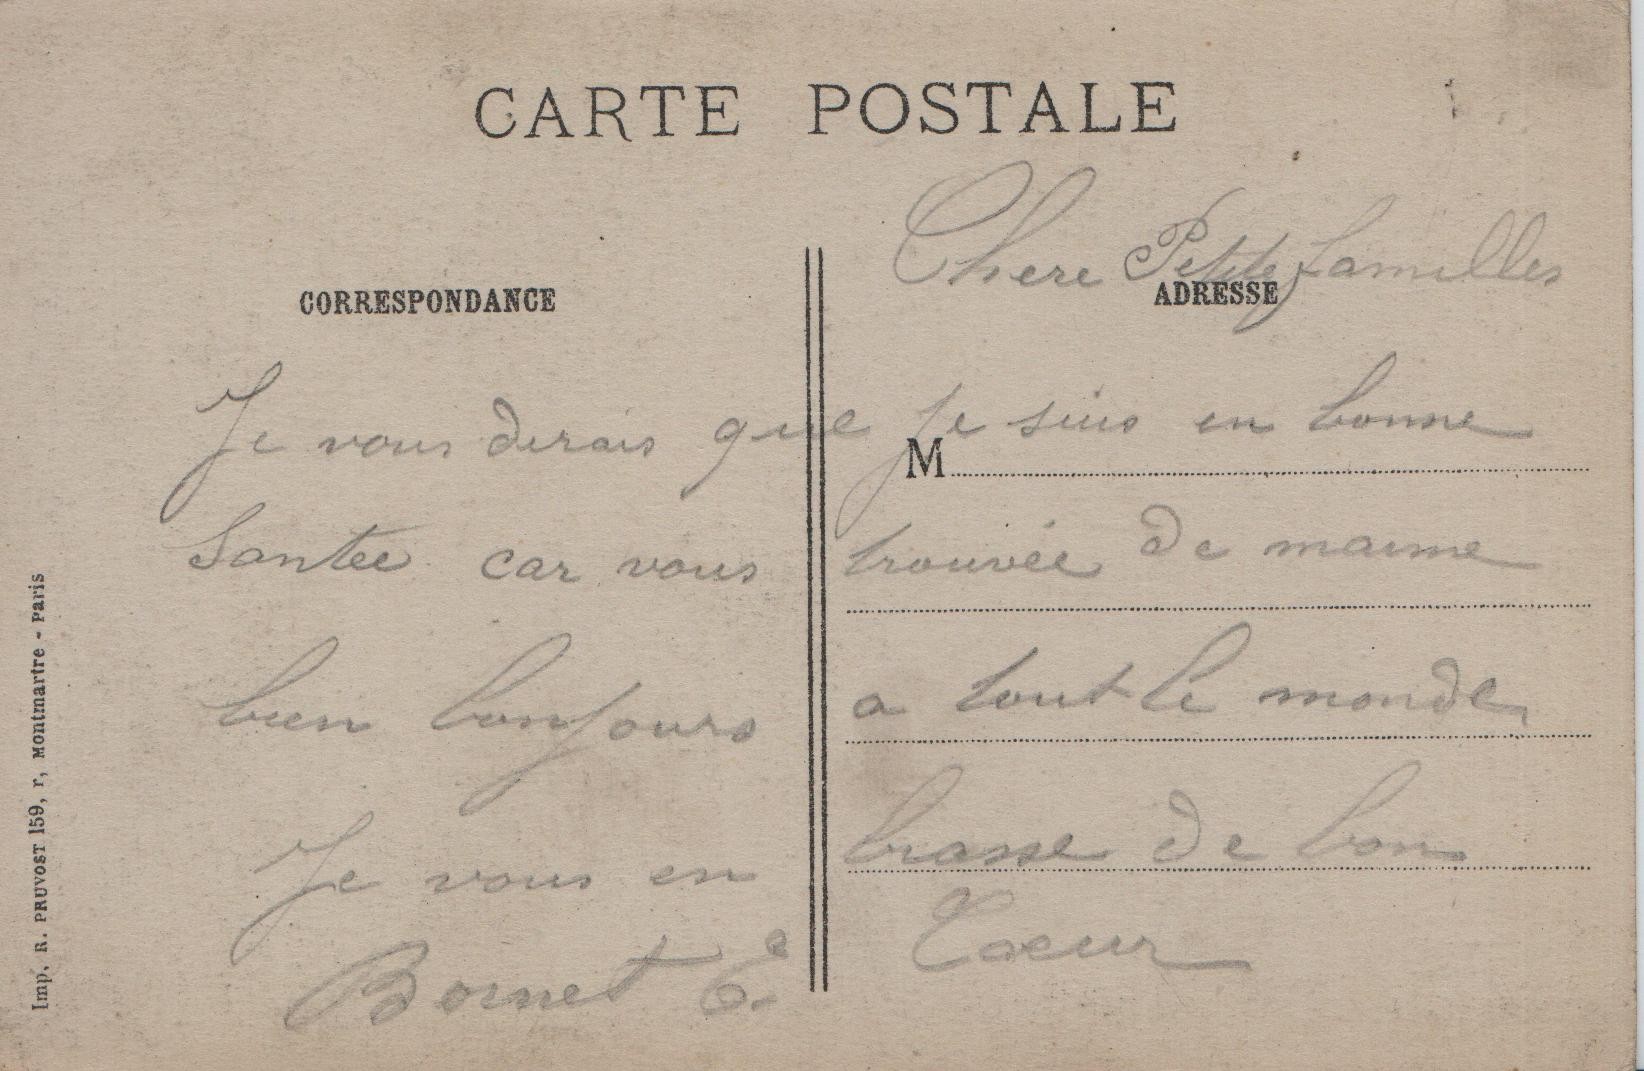 CARTE POSTALE
Chere Petite familles
CORRESPONDANCE
ADRESSE
Je vous dirais que Je suis en bonne
M
Santee car vous trouvée de maime
bien bonjours a tout le monde
Je vous en brasse de bon
Bornet E. Coeur
Imp. R. PRUVOST 159, r, Montmartre - Paris